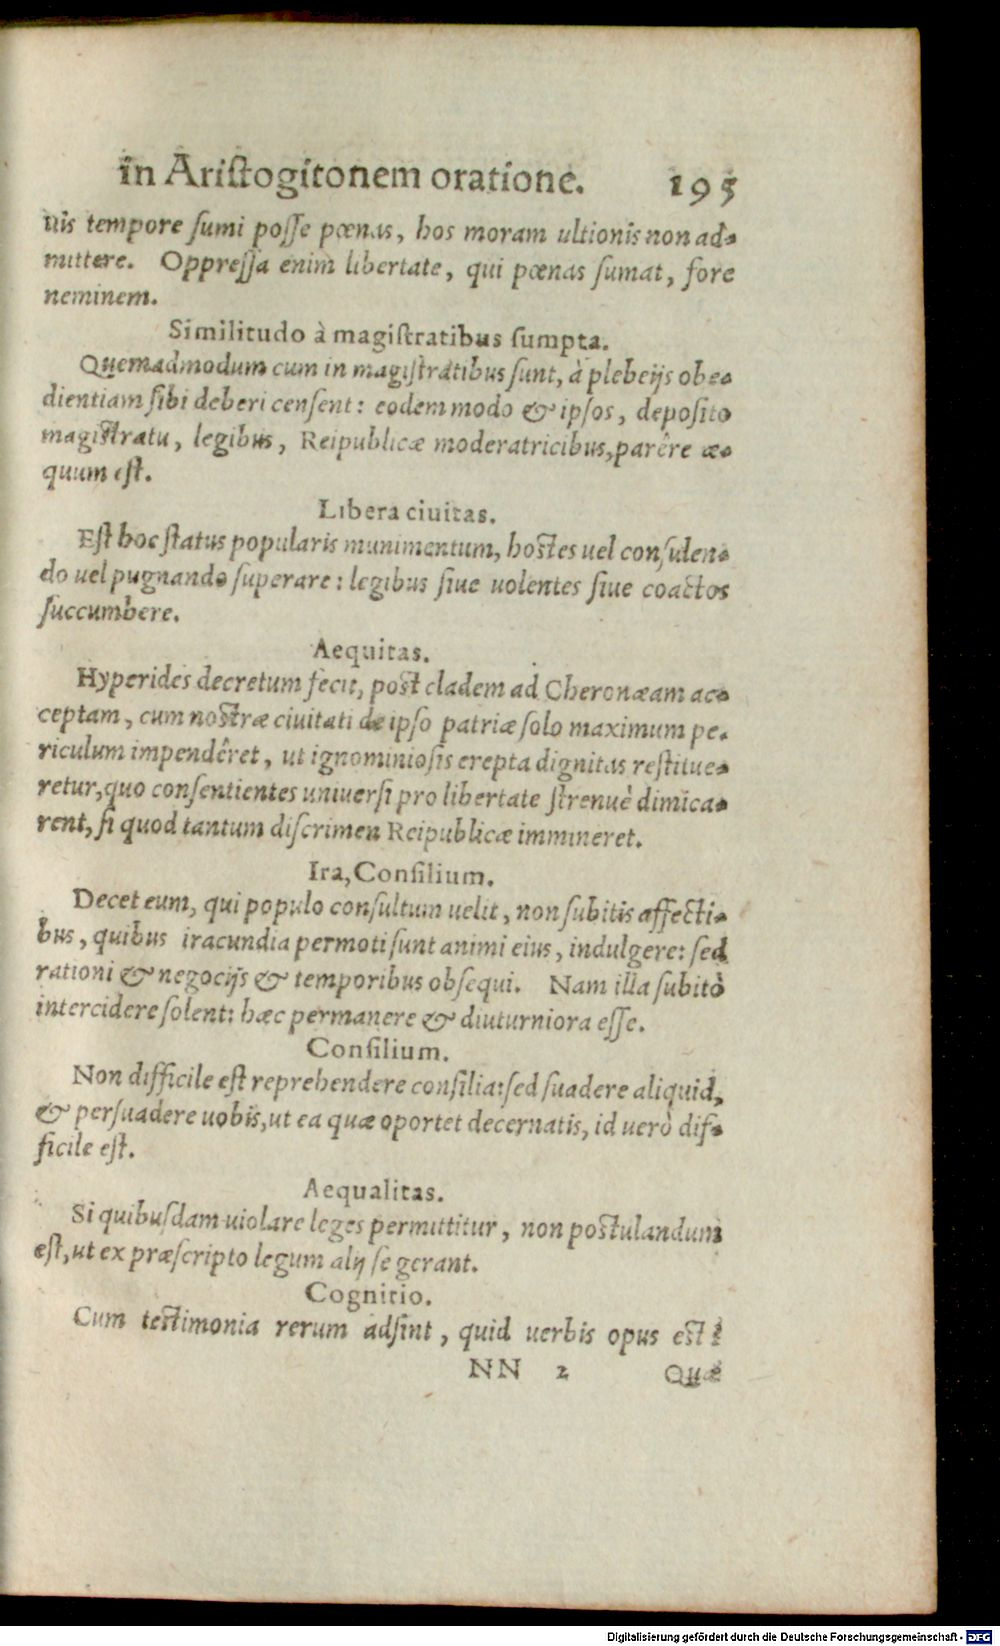 in Aristogitonem oratione. 195
uis tempore sumi posse pœnas, hos moram ultionis non ad-
mittere. Oppressa enim libertate, qui pœnas sumat, fore
neminem.
Similitudo à magistratibus sumpta.
Quemadmodum cum in magistratibus sunt, à plebeijs obe-
dientiam sibi deberi censent: eodem modo & ipsos, deposito
magistratu, legibus, Reipublicæ moderatricibus, parêre æ-
quum est.
Libera ciuitas.
Est hoc status popularis munimentum, hostes uel consulen-
do uel pugnando superare: legibus siue uolentes siue coactos
succumbere.
Aequitas.
Hyperides decretum fecit, post cladem ad Cheronæam ac-
ceptam, cum nostræ ciuitati de ipso patriæ solo maximum pe-
riculum impendêret, ut ignominiosis erepta dignitas restitue-
retur, quo consentientes uniuersi pro libertate strenuè dimica-
rent, si quod tantum discrimen Reipublicæ immineret.
Ira, Consilium.
Decet eum, qui populo consultum uelit, non subitis affecti-
bus, quibus iracundia permoti sunt animi eius, indulgere: sed
rationi & negocijs & temporibus obsequi. Nam illa subitò
intercidere solent: hæc permanere & diuturniora esse.
Consilium.
Non difficile est reprehendere consilia: sed suadere aliquid,
& persuadere uobis, ut ea quæ oportet decernatis, id uerò dif-
ficile est.
Aequalitas.
Si quibusdam uiolare leges permittitur, non postulandum
est, ut ex præscripto legum alij se gerant.
Cognitio.
Cum testimonia rerum adsint, quid uerbis opus est?
NN 2 Quæ
Digitalisierung gefördert durch die Deutsche Forschungsgemeinschaft - DFG